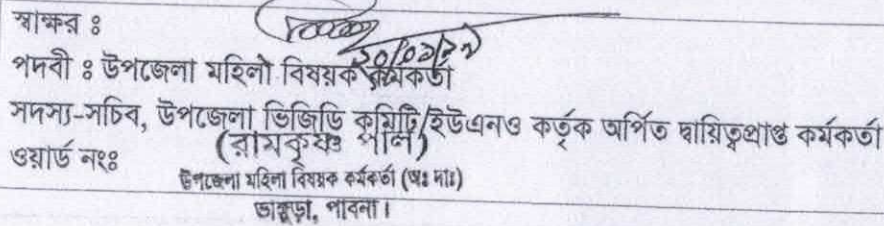 স্বাক্ষর ঃ
পদবী ঃ উপজেলা মহিলা বিষয়ক কর্মকর্তা
সদস্য-সচিব, উপজেলা ভিজিডি কমিটি/ইউএনও কর্তৃক অর্পিত দ্বায়িত্বপ্রাপ্ত কর্মকর্তা
(রামকৃষ্ণ পাল)
ওয়ার্ড নংঃ
উপজেলা মহিলা বিষয়ক কর্মকর্তা (অঃ দাঃ)
ভাঙ্গুড়া, পাবনা।